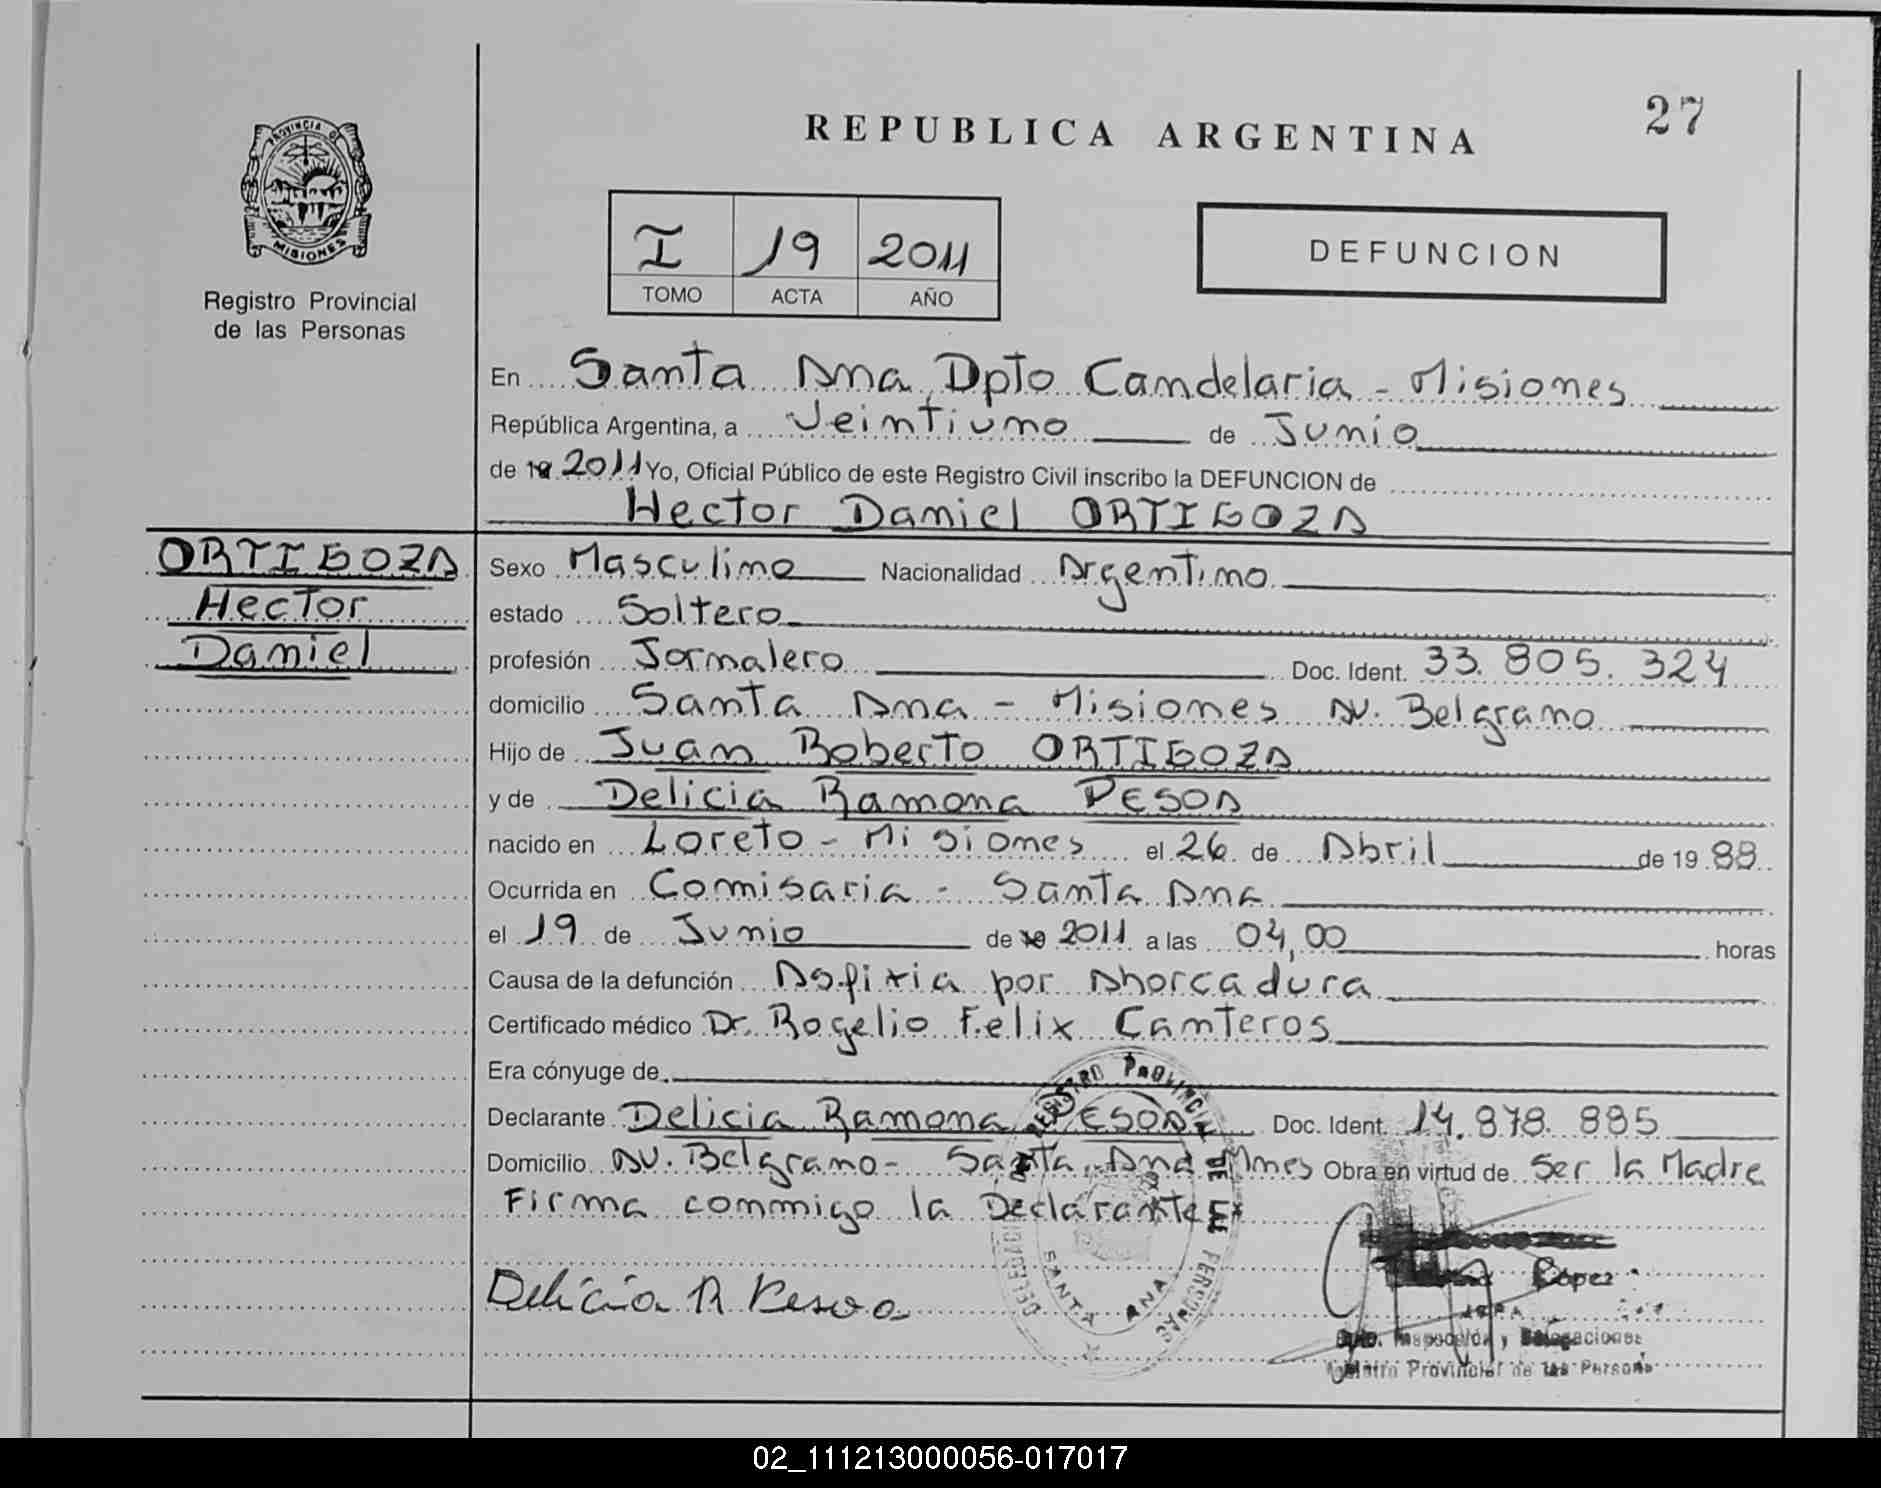 27
REPUBLICA ARGENTINA
PROVINCIA DE
MISIONES
Registro Provincial
de las Personas
I 19 2011
TOMO ACTA AÑO
DEFUNCION
En Santa Ana Dpto Candelaria - Misiones
República Argentina, a Veintiuno de Junio
de 19 2011 Yo, Oficial Público de este Registro Civil inscribo la DEFUNCION de
Hector Daniel ORTIGOZA
ORTIGOZA
Hector
Daniel
Sexo Masculino Nacionalidad Argentino
estado Soltero
profesión Jornalero Doc. Ident. 33.805.324
domicilio Santa Ana - Misiones AV. Belgrano
Hijo de Juan Roberto ORTIGOZA
y de Delicia Ramona PESOA
nacido en Loreto - Misiones el 26 de Abril de 1988
Ocurrida en Comisaria - Santa Ana
el 19 de Junio de 19 2011 a las 04,00 horas
Causa de la defunción Asfixia por Ahorcadura
Certificado médico Dr. Rogelio Felix Canteros
Era cónyuge de
Declarante Delicia Ramona PESOA Doc. Ident. 14.878.885
Domicilio AV. Belgrano - Santa Ana Mnes Obra en virtud de Ser la Madre
Firma conmigo la Declarante
REGISTRO PROVINCIAL DE LAS PERSONAS
SANTA ANA
Delicia R Pesoa
López
JEFA
Dpto. Inspección y Delegaciones
Registro Provincial de las Personas
02_111213000056-017017